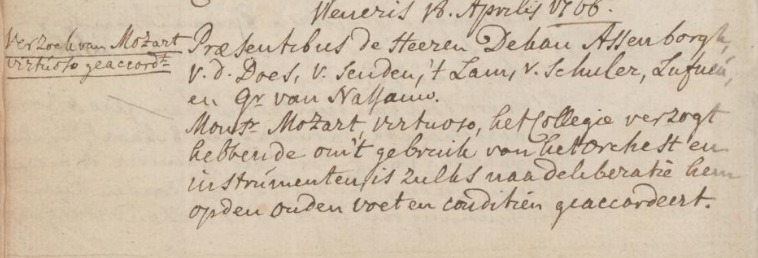 Veneris 18. Aprilis 1766.
Verzoek van Mozart
virtuoso geaccordt.
Præsentibus de Heeren Dehau Assenborgh,
v. d. Does, v. Senden, 't Lam, v. Schuler,
en Gr. van Nassauw.
Monsr. Mozart, virtuoso, het Collegie verzogt
hebbende om 't gebruik van het orchest en
instrúmenten, is zulks na deliberatie hem
op den ouden voet en conditiën geaccordeert.